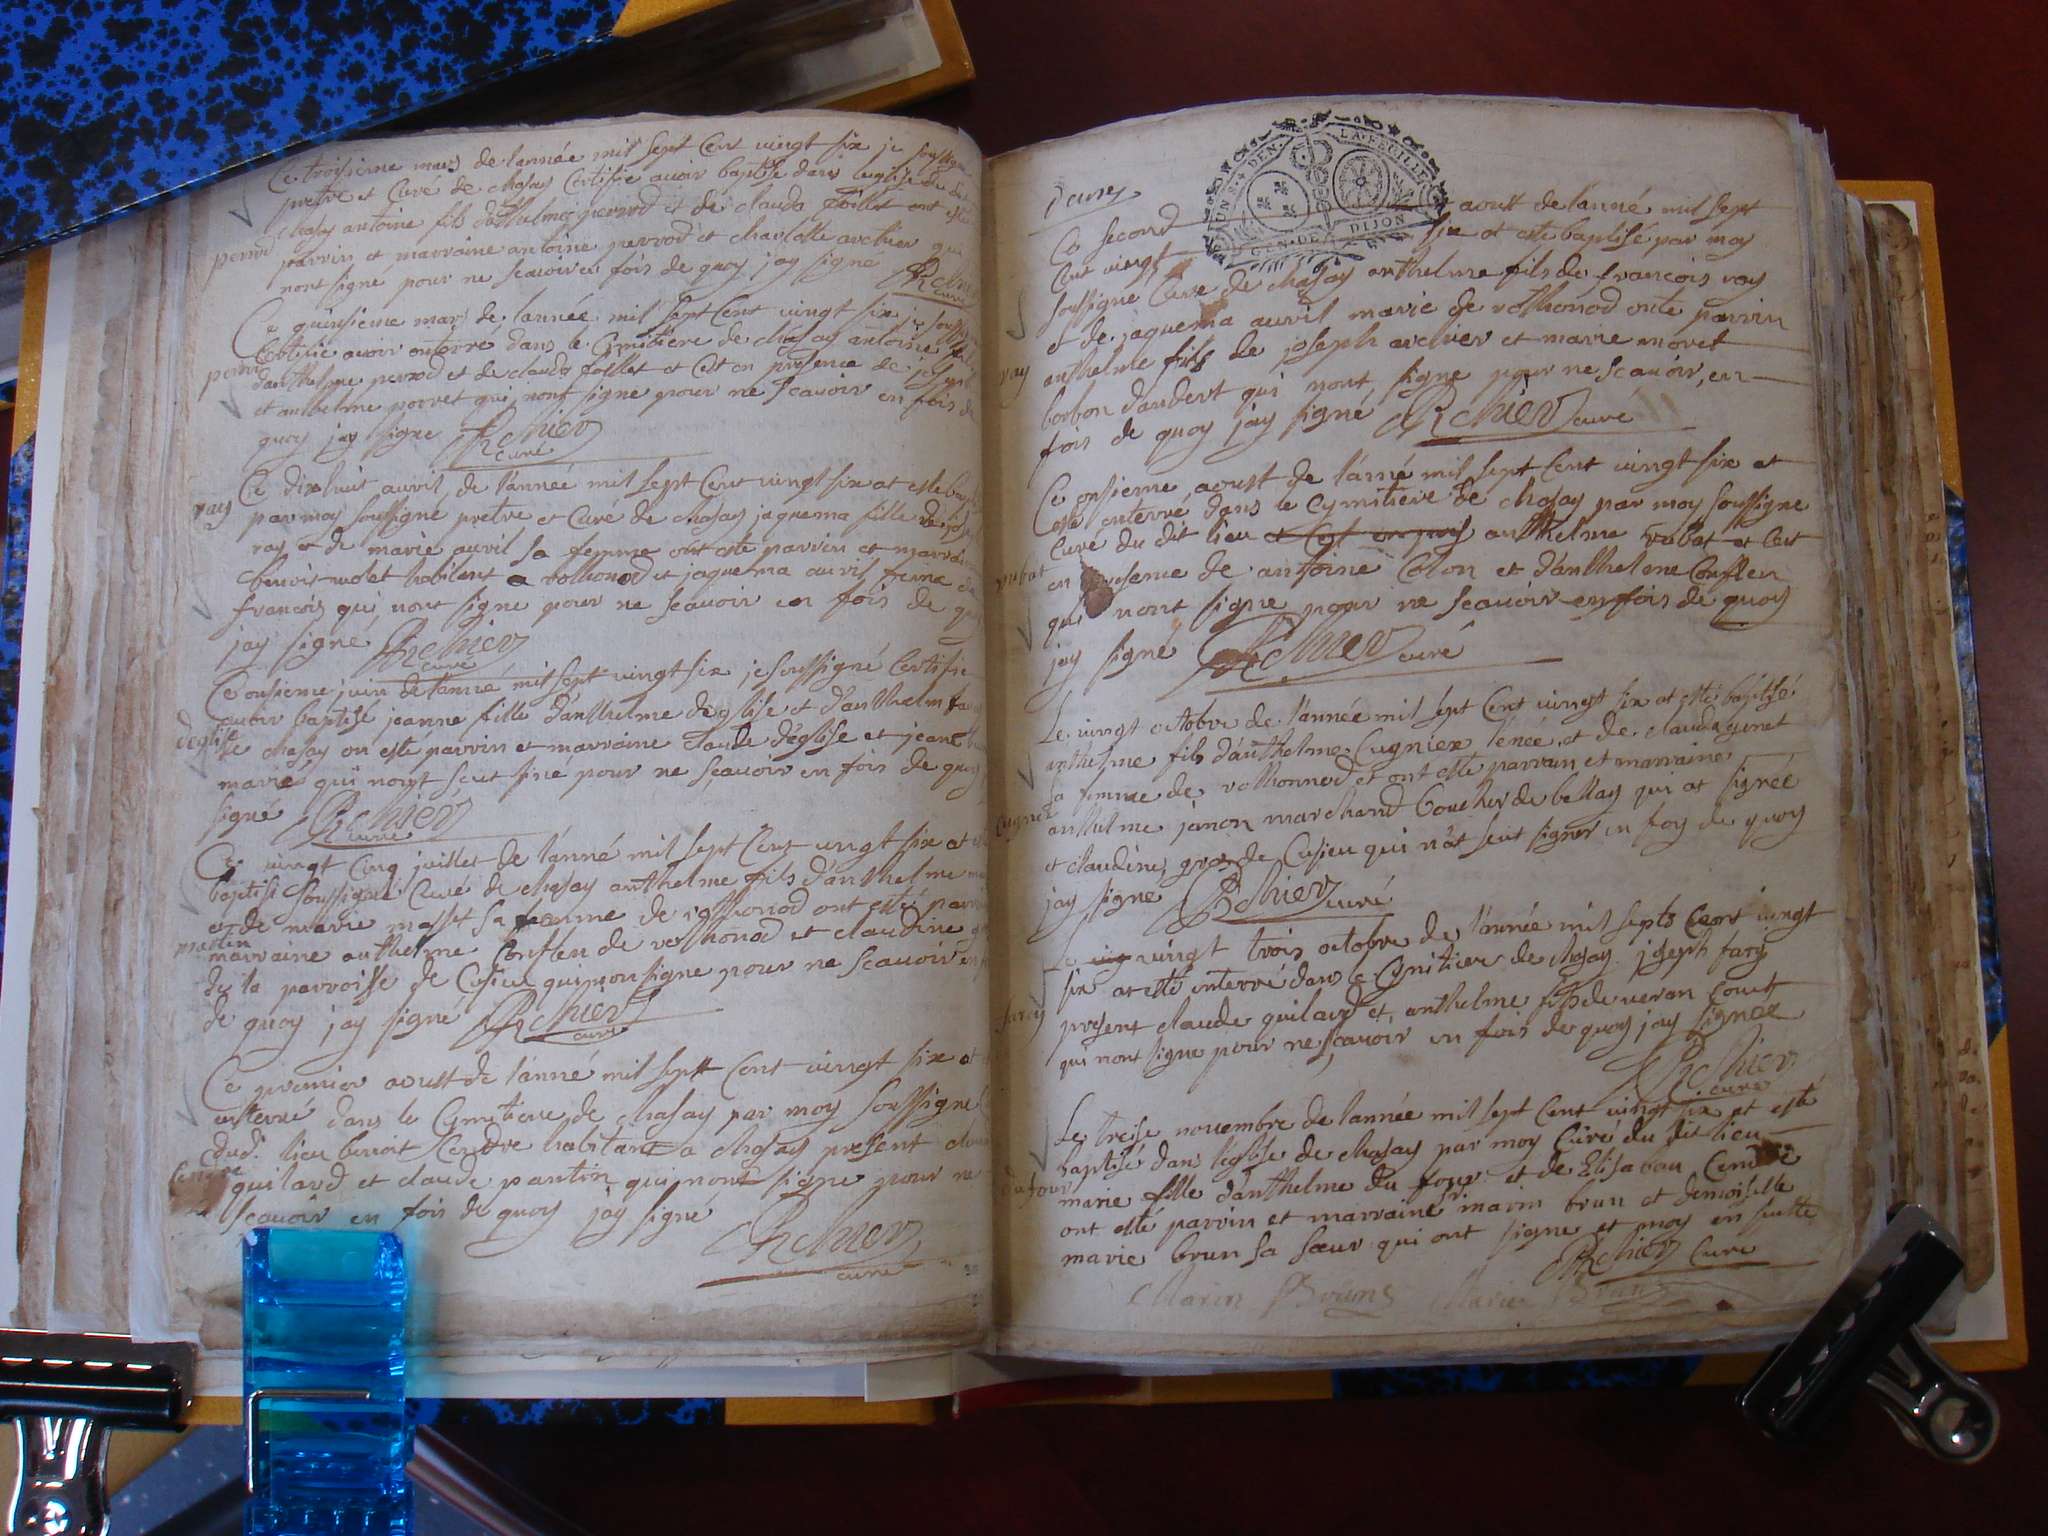 Ce troisieme mars de lannée mil sept Cent vingt six je soussigné
pretre et Curé de chasay Certifie auoir baptisé dans leglise du dit
chasay antoine fils danthelme perrod et de clauda foillet ont esté
perrod
parrin et marraine antoine perrod et charlotte archier qui
nont signé pour ne scauoir en fois de quoy jay signé
curé
Ce quinsieme mars de lannée mil sept Cent vingt six je soussigné
Certifie auoir enterré dans le Cymitiere de chasay antoine fils
perrod
danthelme perrod et de clauda foillet et Cet en presence de joseph
et anthelme porret qui nont signe pour ne scauoir en fois de
quoy jay signe Archier
curé
Ce dixhuit auril de lannée mil sept Cent vingt six at esté
ray
par moy soussigné pretre et Curé de chasay jaquema fille de
ray et de marie auril sa femme ont esté parrin et marraine
benoit molet habitant a rothonod et jaquema auril femme de
francois qui nont signe pour ne scauoir en fois de quoy
jay signé Archier
curé
Ce onsieme juin de lanné mil sept vingt six je soussigné Certifie
auoir baptisé jeanne fille danthelme deglise et danthelm
deglise
de chasay on esté parrin et marraine Claude d'église et jeane
marié qui nont seut siné pour ne scauoir en fois de quoy
signé Archier
curé
Ce vingt Cinq juillet de l'anné mil sept Cent vingt six at
baptisé soussigné Curé de chasay anthelme fils danthelme
et de marie masst sa femme de rothonod ont esté
martin
marraine anthelme Conflen de rothonod et claudine
de la parroisse de Cusieu qui non signe pour ne scauoir en
de quoy jay signé Archier
curé
Ce premier aoust de lanné mil sept Cent vingt six at
enterré dans le Cymetiere de chasay par moy soussigné
dud. lieu benoit Cendre habitant a chasay present
Cendre
guilard et claude pantin qui nont signe pour ne
scauoir en fois de quoy jay signé
Archier
curé
GEN. DE DIJON
LA FEUILLE
Ce second aoust de lanné mil sept
Cent vingt six at esté baptisé par moy
soussigne Curé de chasay anthelme fils de francois ray
et de jaquema auril marié de rothonod onte parrin
ray
anthelme fils de joseph archier et marie moret
borbon dandert qui nont signe pour ne scauoir, en
fois de quoy jay signé Archier curé
Ce onsieme aoust de lanné mil sept Cent vingt six at
esté enterré dans le Cymitiere de chasay par moy soussigne
Curé du dit lieu anthelme rubat et Cet
rubat
en presence de antoine Colon et danthelme Conflen
qui nont signe pour ne scauoir en fois de quoy
jay signé Archier curé
Le vingt octobre de l'année mil sept Cent vingt six at esté baptisé
anthelme fils danthelme Cugniex et de clauda
sa femme de rothonnod et ont esté parrain et marraine
Cugniex
anthelme janon marchand boucher de bellay qui at signée
et claudine gros de Cusieu qui nat seut signer en foy de quoy
jay signe Archier curé
Le vingt trois octobre de l'année mil septs Cent vingt
six at esté enterré dans le Cymitiere de chasay joseph farcy
farcy
present claude guilard et anthelme fils de ueran
qui nont signe pour ne scauoir en fois de quoy jay signée
Archier
curé
Le treise nouembre de lannée mil sept Cent vingt six at esté
baptisé dans léglise de chasay par moy Curé du dit lieu
du four
marie fille danthelme du four et de Elisabau Cendre
ont esté parrin et marraine marin brun et demoiselle
marie brun sa sœur qui ont signe et moy en suitte
Archier Curé
Marin Brun Marie Brun